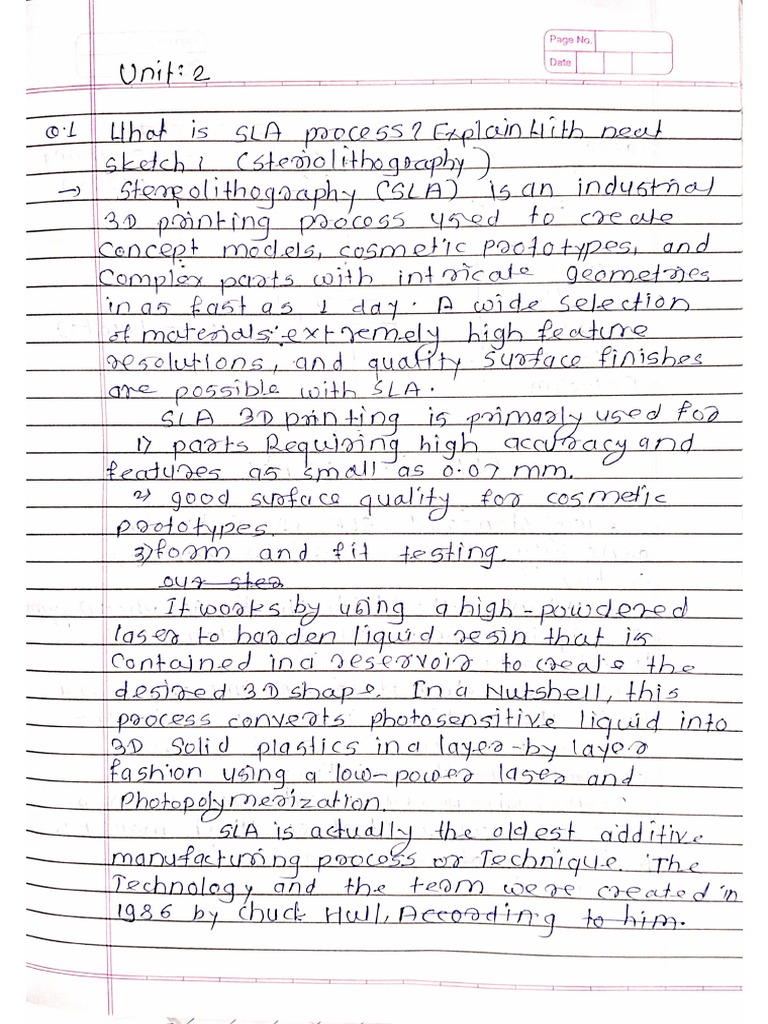 Page No.
Date
Unit: 2
Q.1 What is SLA process? Explain With neat
sketch! (steriolithography)
→ Stereolithography (SLA) is an industrial
3D printing process used to create
concept models, cosmetic prototypes, and
complex parts with intricate geometries
in as fast as 1 day. A wide selection
of materials: extremely high feature
resolutions, and quality surface finishes
are possible with SLA.
SLA 3D printing is primarly used for
1) parts Requiring high accuracy and
features as small as 0.07 mm.
2) good surface quality for cosmetic
prototypes.
3) form and fit testing.
It works by using a high-powdered
laser to harden liquid resin that is
contained in a reservoir to create the
desired 3D shape. In a Nutshell, this
process converts photosensitive liquid into
3D Solid plastics in a layer-by layer
fashion using a low-power laser and
Photopolymerization.
SLA is actually the oldest additive
manufacturing process or Technique. The
Technology and the term were created in
1986 by Chuck Hull, According to him.